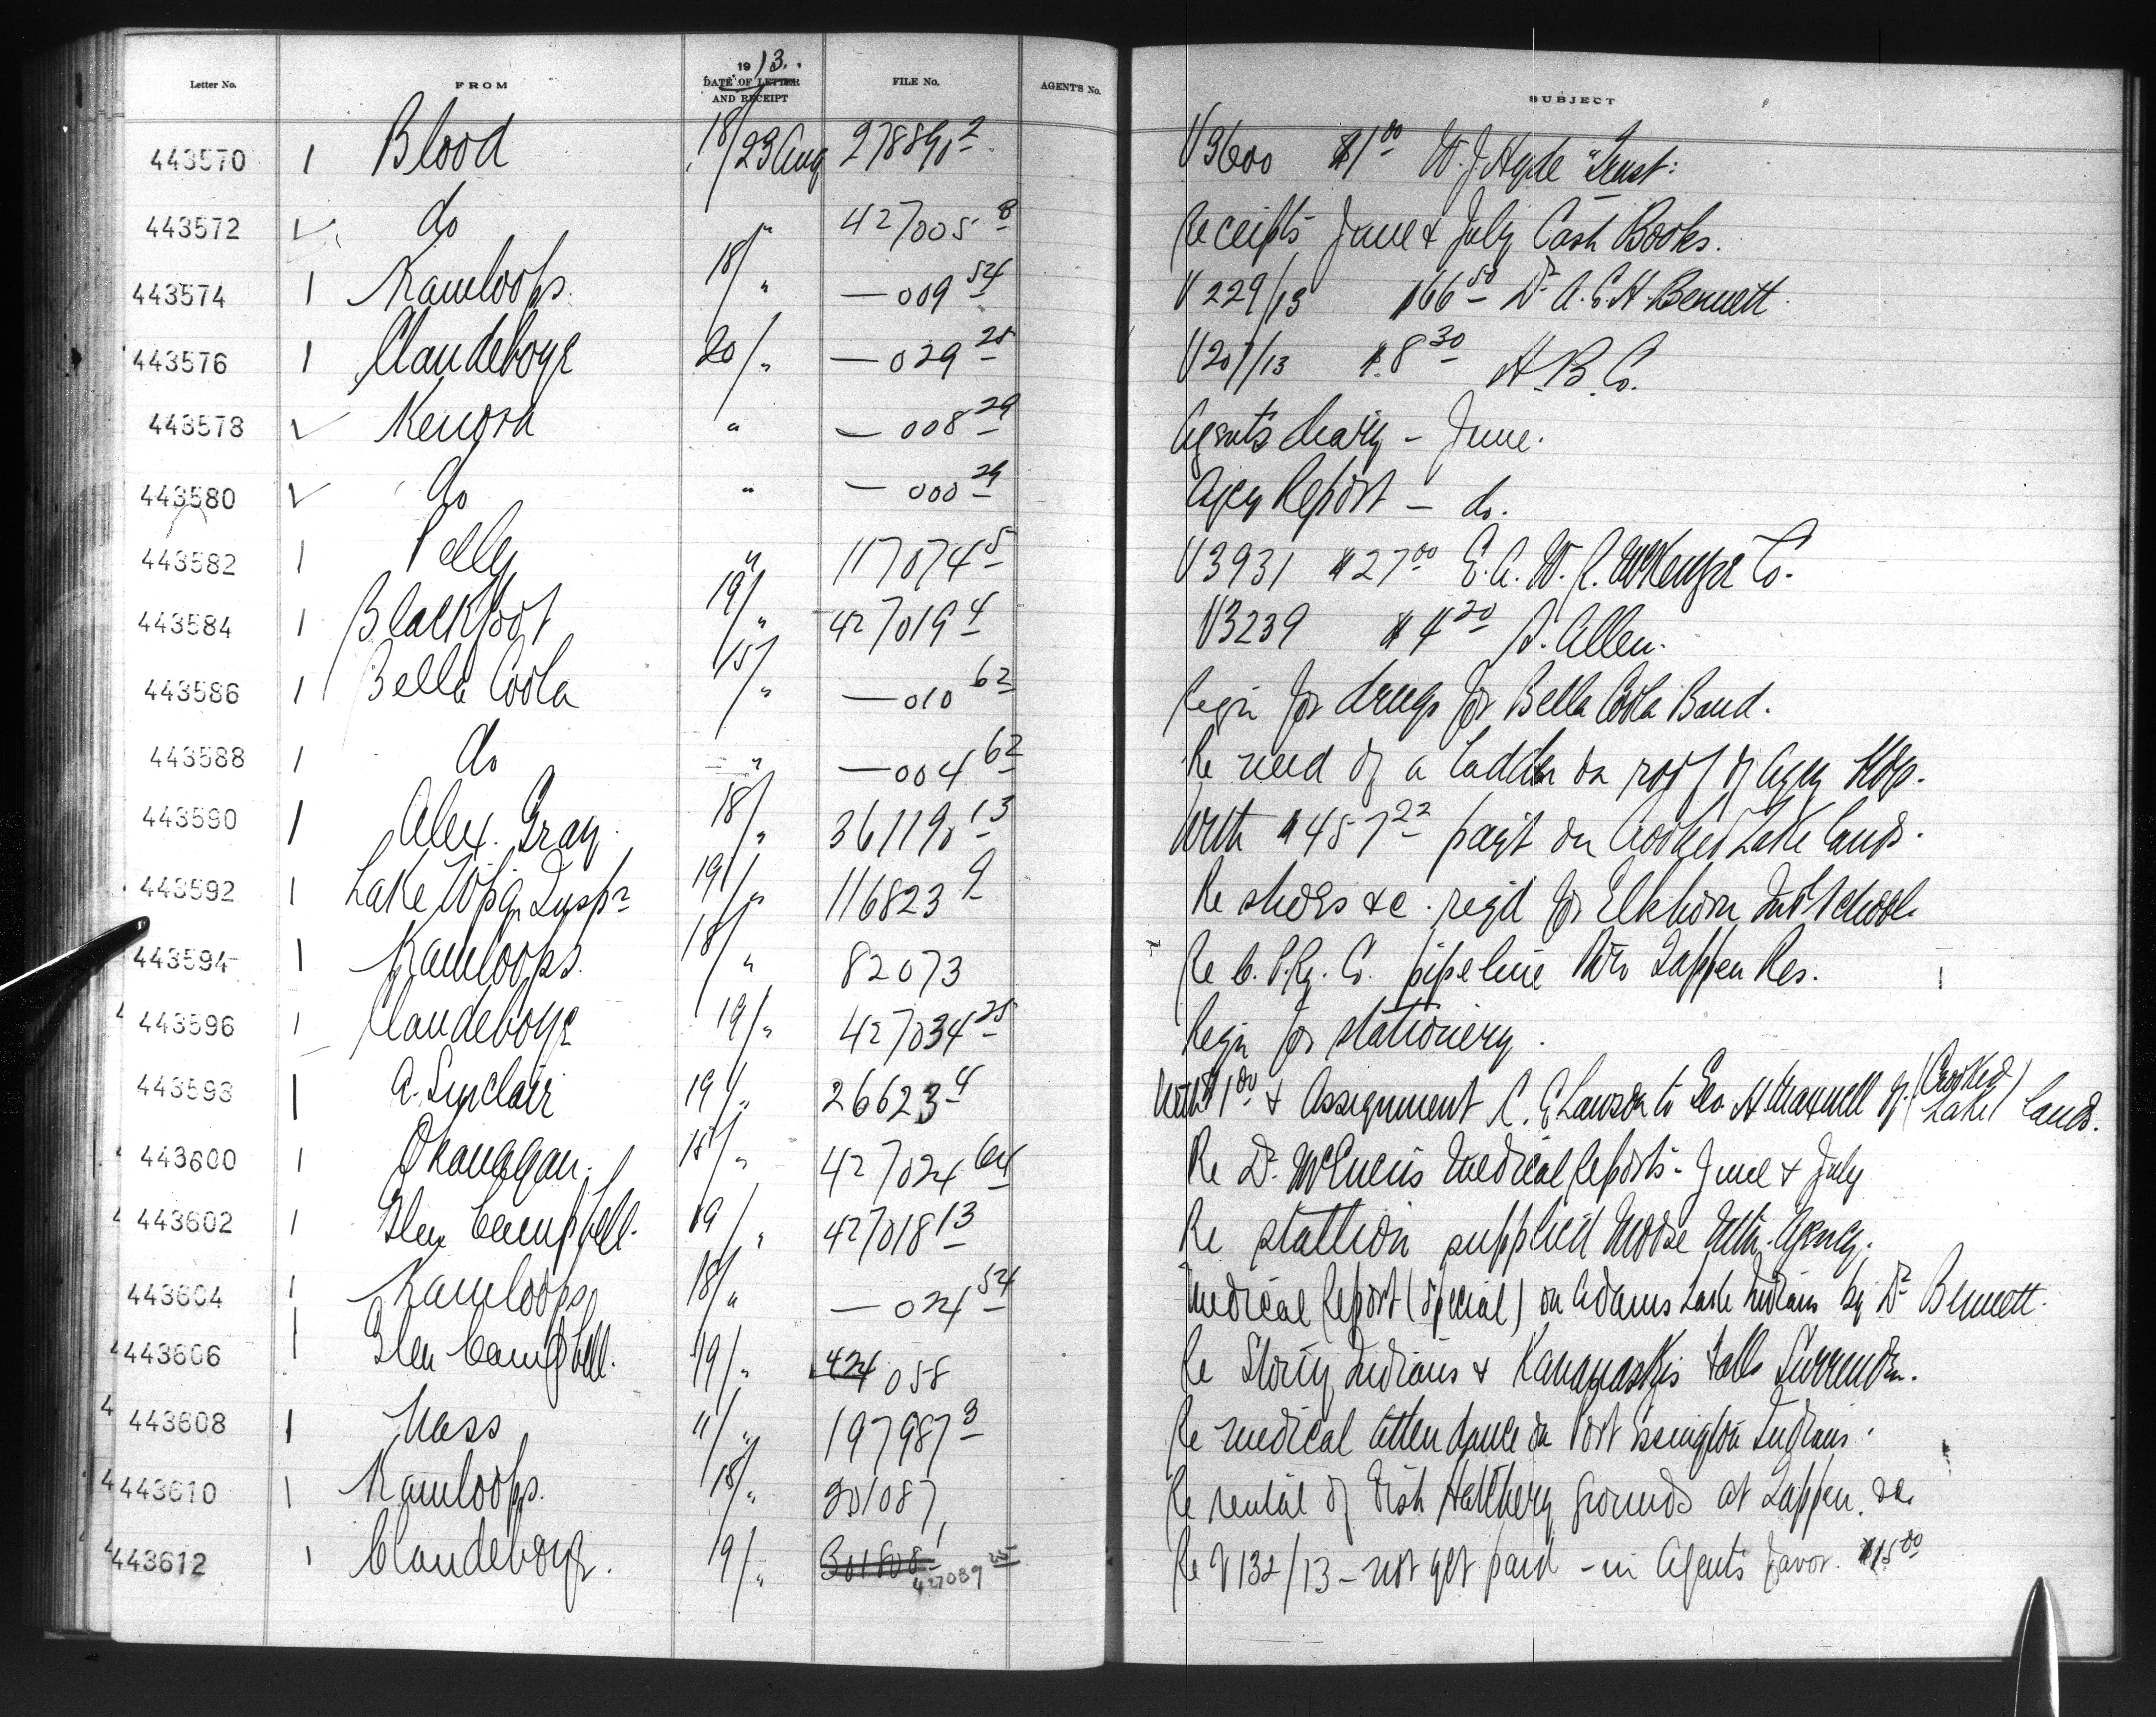 Letter No. FROM 1913. DATE OF LETTER AND RECEIPT FILE No. AGENT'S No. SUBJECT
443570 1 Blood 18/23 Aug 27889, 2 V3600 $1 00 W. J. Hyde "Trust:
443572 ✓ do " 427005 8 Receipts June & July Cash Books.
443574 1 Kamloops. 18/" — 009 54 V 229/13 $66 50 Dr A. C. H. Bennett.
443576 1 Clandeboye 20/" — 029 25 V 207/13 $8 30 H. B. Co.
443578 ✓ Kenora " — 008 29 Agent's diary - June.
443580 ✓ do " — 000 29 Agcy Report — do.
443582 1 Pelly " 117074 5 V3931 $27 00 E. A. W. R. McKenzie Co.
443584 1 Blackfoot 19/" 427019 4 V3239 $4 20 Allen.
443586 1 Bella Coola 15/" — 010 62 Reqn for drugs for Bella Coola Band.
443588 1 do " — 004 62 Re need of a ladder on roof of Agcy Bldg.
443590 1 Alex. Gray 18/" 36119, 13 With $457 22 payt on Crooked Lake lands.
443592 1 Lake Wpg. Inspr 19/" 116823 9 Re shoes &c. reqd for Elkhorn Indl School.
443594 1 Kamloops. 18/" 82073 Re C. P. Ry. Co. pipe line thro Tappen Res.
443596 1 Clandeboye 19/" 427034 25 Reqn for stationery.
443598 1 A. Sinclair 19/" 26623 4 With $1 00 & Assignment C. E. Lawson to Geo. H Maxwell of (Crooked Lake) lands.
443600 1 Okanagan. 18/" 427024 64 Re Dr. McEwen's Medical Reports - June & July
443602 1 Glen Campbell. 19/" 427018 13 Re stallion supplied Moose Mtn. Agency.
443604 1 Kamloops 18/" — 024 54 Medical Report (special) on Adams Lake Indians by Dr Bennett.
443606 1 Glen Campbell. 19/" 424058 Re Stony Indians & Kananaskis Falls Surrender.
443608 1 Nass 11/" 197987 3 Re medical attendance on Port Essington Indians.
443610 1 Kamloops. 18/" 301087, Re rental of Fish Hatchery grounds at Tappen. &c.
443612 1 Clandeboye. 19/" 427039 25 Re V132/13 - not yet paid - in Agent's favor. $15 00